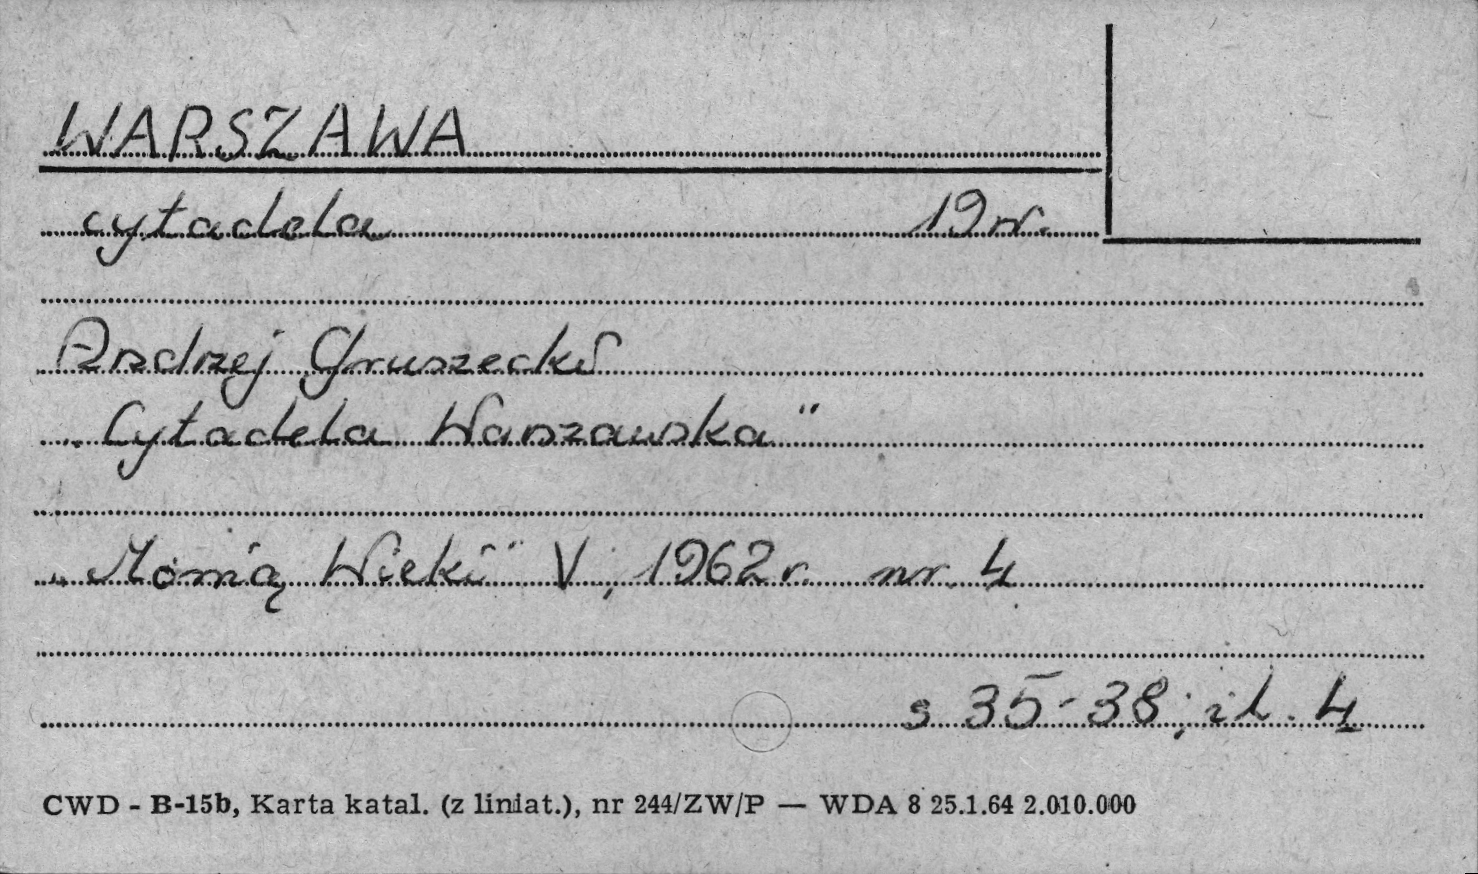 WARSZAWA
cytadela 19 w.
Andrzej Gruszecki
„Cytadela Warszawska"
„Mówią Wieki" V, 1962 r. nr. 4
s 35-38; il. 4
CWD - B-15b, Karta katal. (z liniat.), nr 244/ZW/P — WDA 8 25.1.64 2.010.000